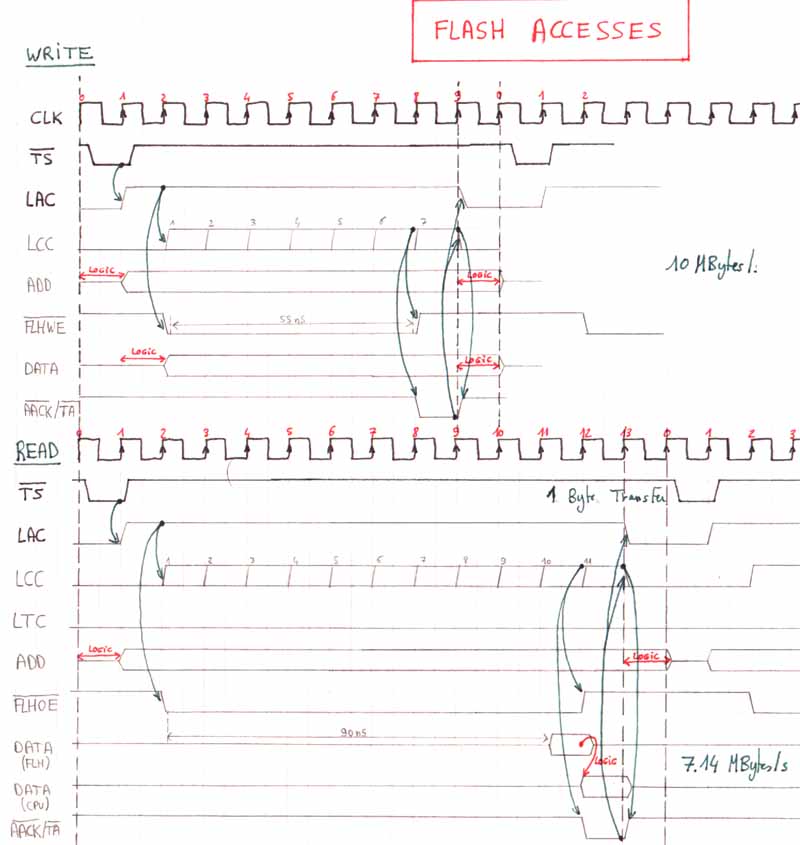 FLASH ACCESSES
WRITE
0 1 2 3 4 5 6 7 8 9 0 1 2
CLK
TS
LAC
1 2 3 4 5 6 7
LCC
10 MBytes/s
LOGIC LOGIC
ADD
55ns
FLHWE
LOGIC LOGIC
DATA
AACK/TA
0 1 2 3 4 5 6 7 8 9 10 11 12 13 0 1 2 3
READ
TS
1 Byte Transfer
LAC
1 2 3 4 5 6 7 8 9 10 11
LCC
LTC
LOGIC LOGIC
ADD
FLHOE
90ns
DATA
(FLH)
LOGIC
7.14 MBytes/s
DATA
(CPU)
AACK/TA